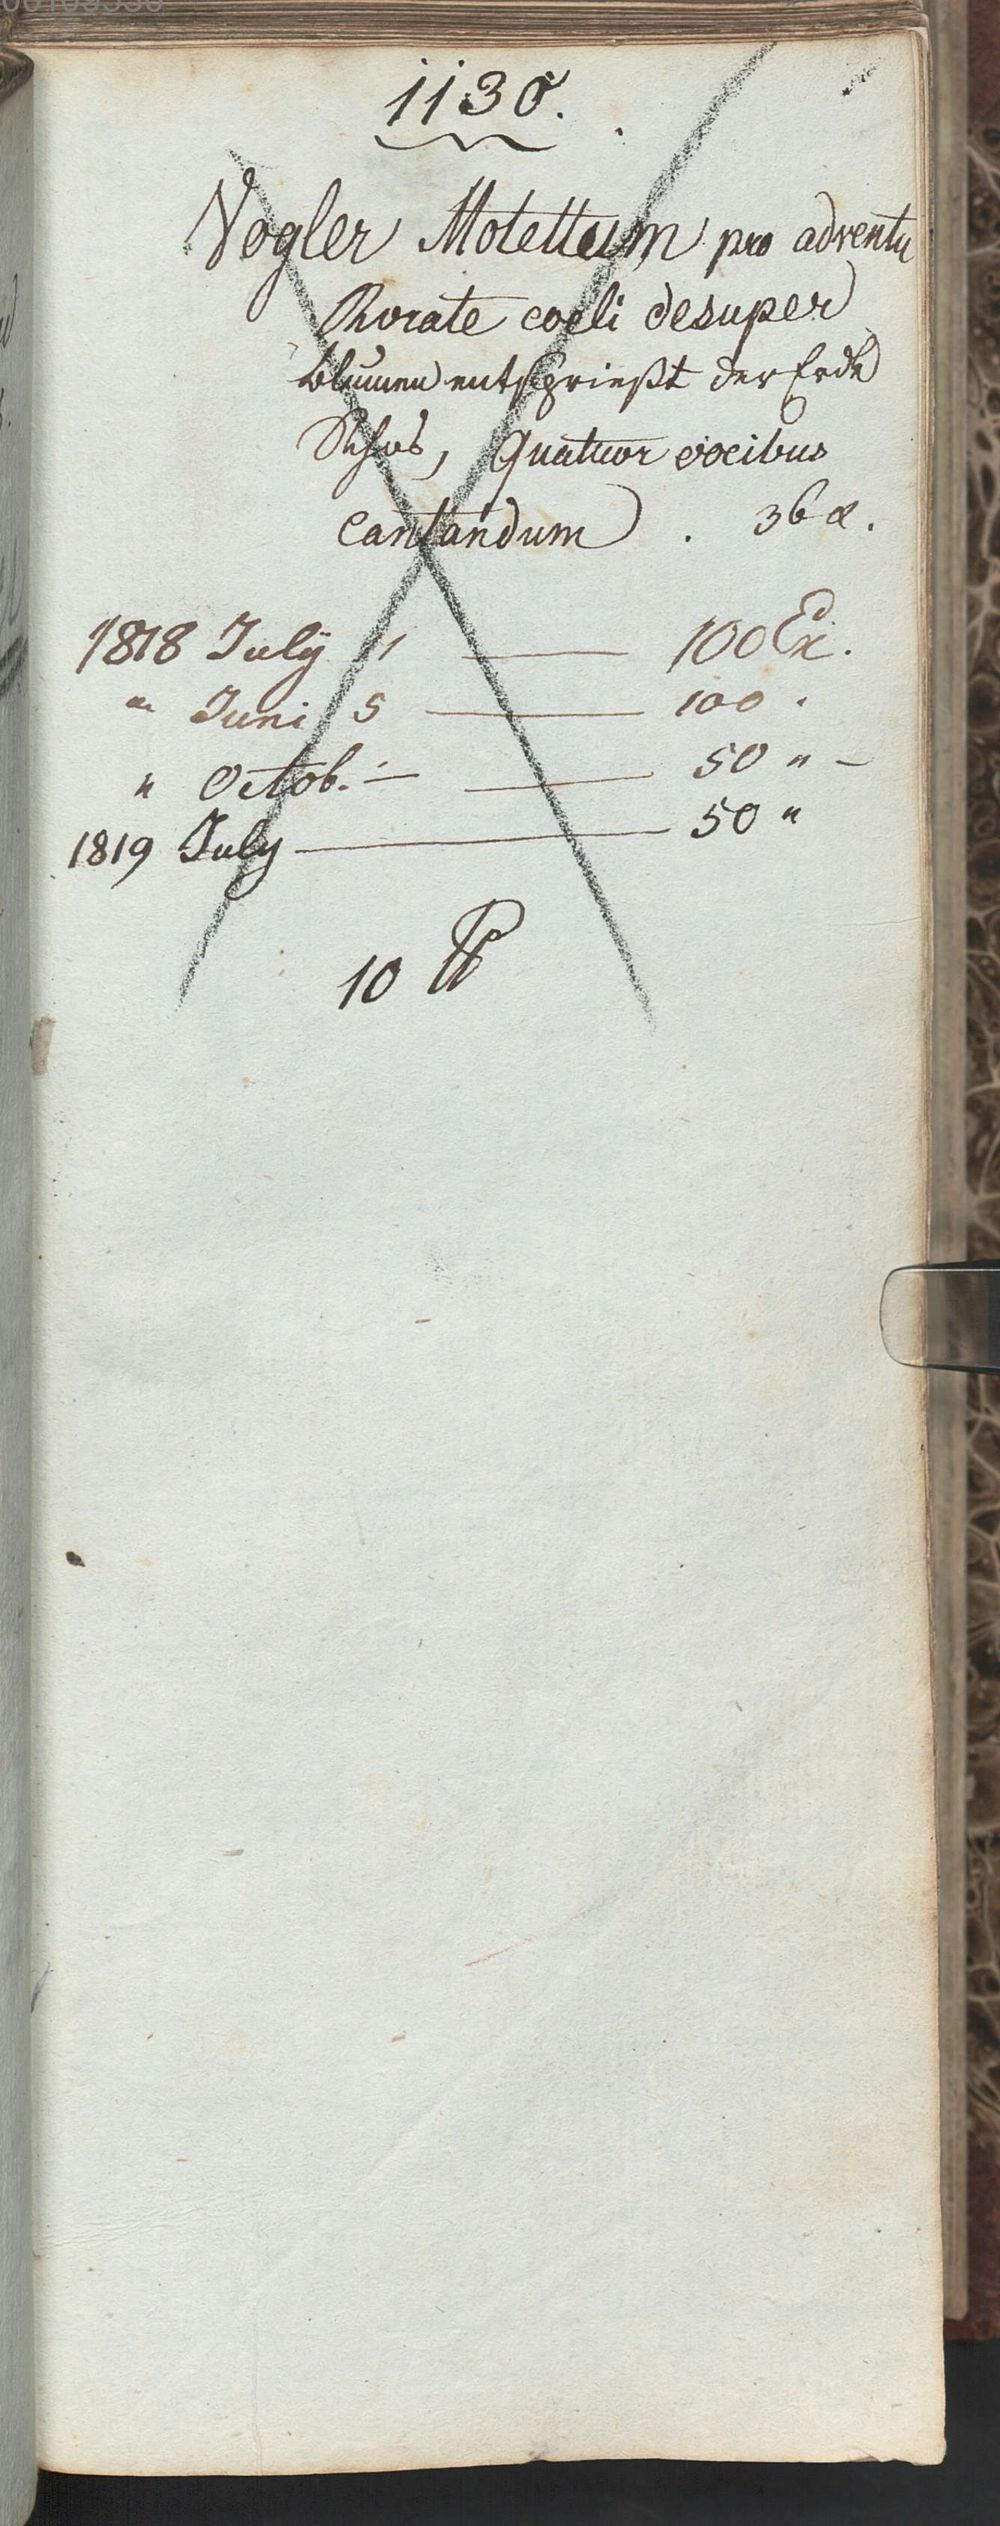 1130.
Vogler Motettum pro adventu
Rorate coeli desuper
Blumen entsprießt der Erde
Schos, Quatuor vocibus
cantandum . 36 x.
1818 July 11 — 100 Ex.
" Juni 5 — 100 "
" Octob. — — 50 " —
1819 July — 50 "
10